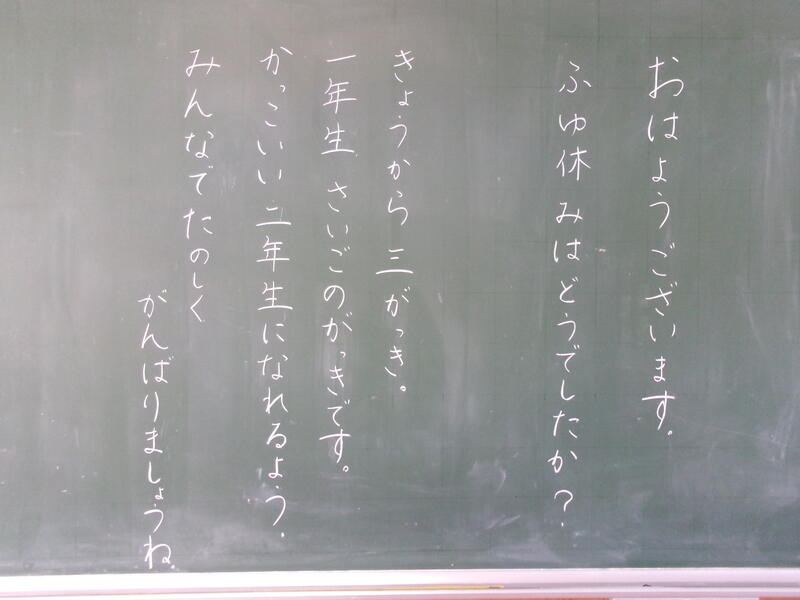 おはようございます。
ふゆ休みはどうでしたか?
きょうから三がっき。
一年生さいごのがっきです。
かっこいい二年生になれるよう、
みんなでたのしく
がんばりましょうね。